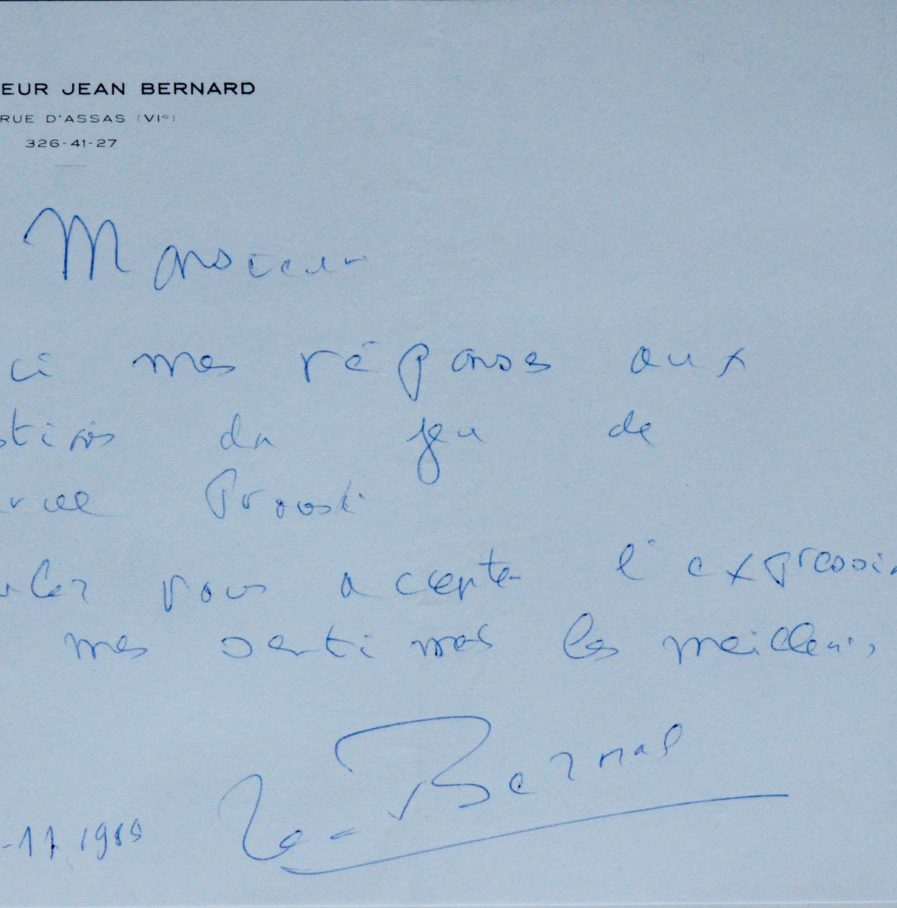 EUR JEAN BERNARD
RUE D'ASSAS (VIe)
326-41-27
Monsieur
ci mes réponses aux
stions du jeu de
Proust
vous accepter l'expression
mes sentiments les meilleurs,
Jean Bernard